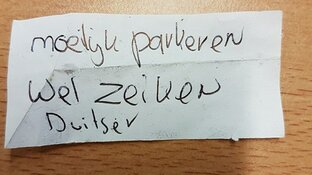 moeilijk parkeren
Wel zeiken
Duitser